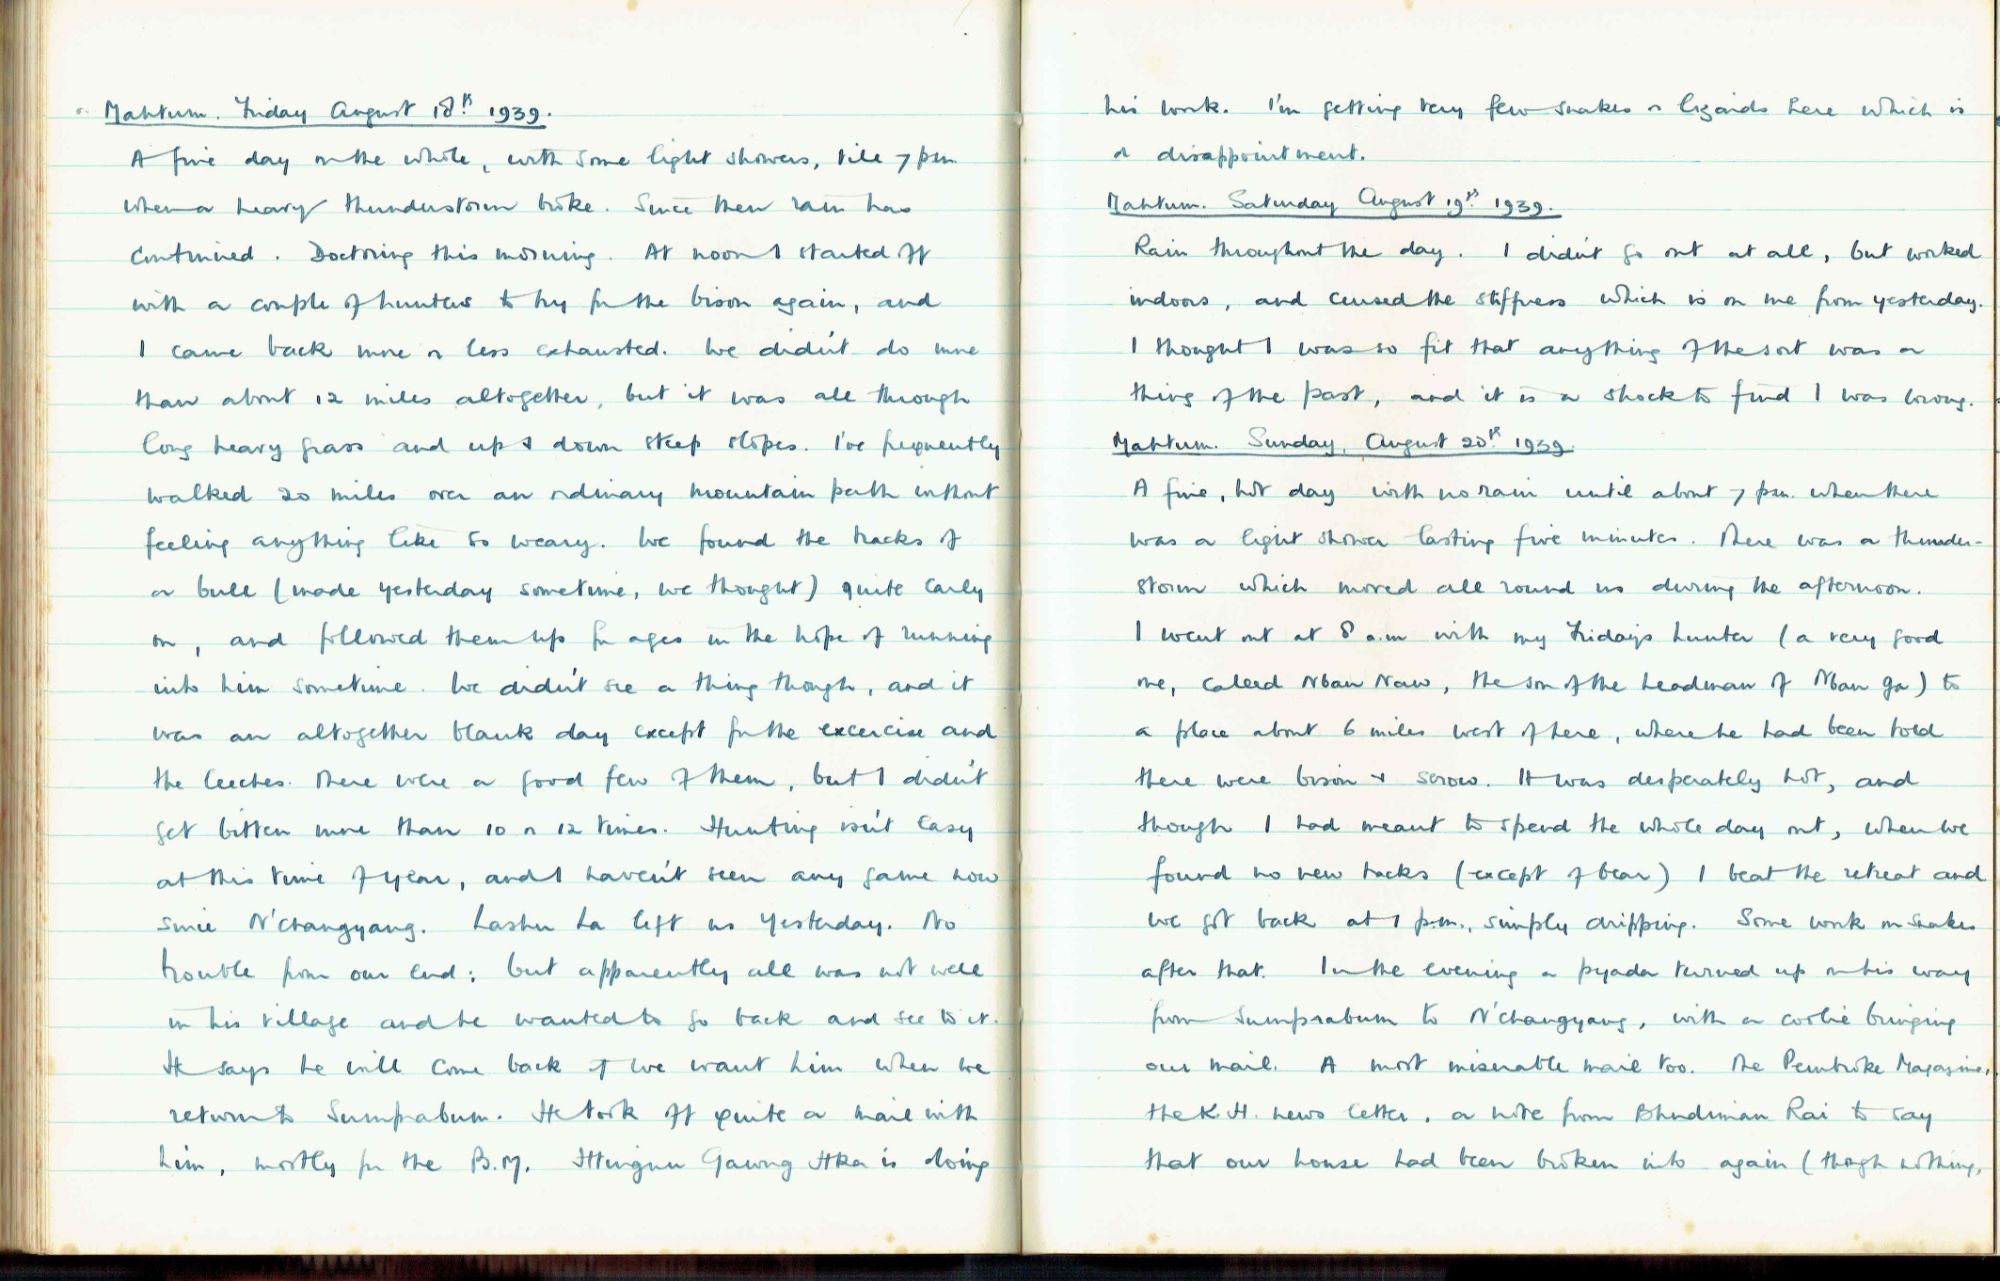 Mahtum. Friday August 18th 1939.
A fine day on the whole, with some light showers, till 7 pm
when a heavy thunderstorm broke. Since then rain has
continued. Doctoring this morning. At noon I started off
with a couple of hunters to try for the bison again, and
I came back more or less exhausted. We didn't do more
than about 12 miles altogether, but it was all through
long heavy grass and up & down steep slopes. I've frequently
walked 20 miles over an ordinary mountain path without
feeling anything like so weary. We found the tracks of
a bull (made yesterday sometime, we thought) quite early
on, and followed them up for ages in the hope of running
into him sometime. We didn't see a thing though, and it
was an altogether blank day except for the excercise and
the leeches. There were a good few of them, but I didn't
get bitten more than 10 or 12 times. Hunting isn't easy
at this time of year, and I haven't seen any game now
since N'changyang. Lashu La left us yesterday. No
trouble from our end; but apparently all was not well
in his village and he wanted to go back and see to it.
He says he will come back if we want him when we
return to Sumprabum. He took off quite a mail with
him, mostly for the B.M. Htingnu Gawng Hka is doing
his work. I'm getting very few snakes or lizards here which is
a disappointment.
Mahtum. Saturday August 19th. 1939.
Rain throughout the day. I didn't go out at all, but worked
indoors, and cursed the stiffness which is on me from yesterday.
I thought I was so fit that anything of the sort was a
thing of the past, and it is a shock to find I was wrong.
Mahtum. Sunday, August 20th. 1939.
A fine, hot day with no rain until about 7 pm. when there
was a light shower lasting five minutes. There was a thunder-
storm which moved all round us during the afternoon.
I went out at 8 a.m with my Friday's hunter (a very good
one, called Nbau Naw, the son of the headman of Nbau Ga) to
a place about 6 miles west of here, where he had been told
there were bison & serow. It was desperately hot, and
though I had meant to spend the whole day out, when we
found no new tracks (except of bear) I beat the retreat and
we got back at 1 p.m., simply dripping. Some work on snakes
after that. In the evening a pyada turned up on his way
from Sumprabum to N'changyang, with a coolie bringing
our mail. A most miserable mail too. The Pembroke Magazine,
the K.H. news letter, a note from Bhudiman Rai to say
that our house had been broken into again (though nothing,